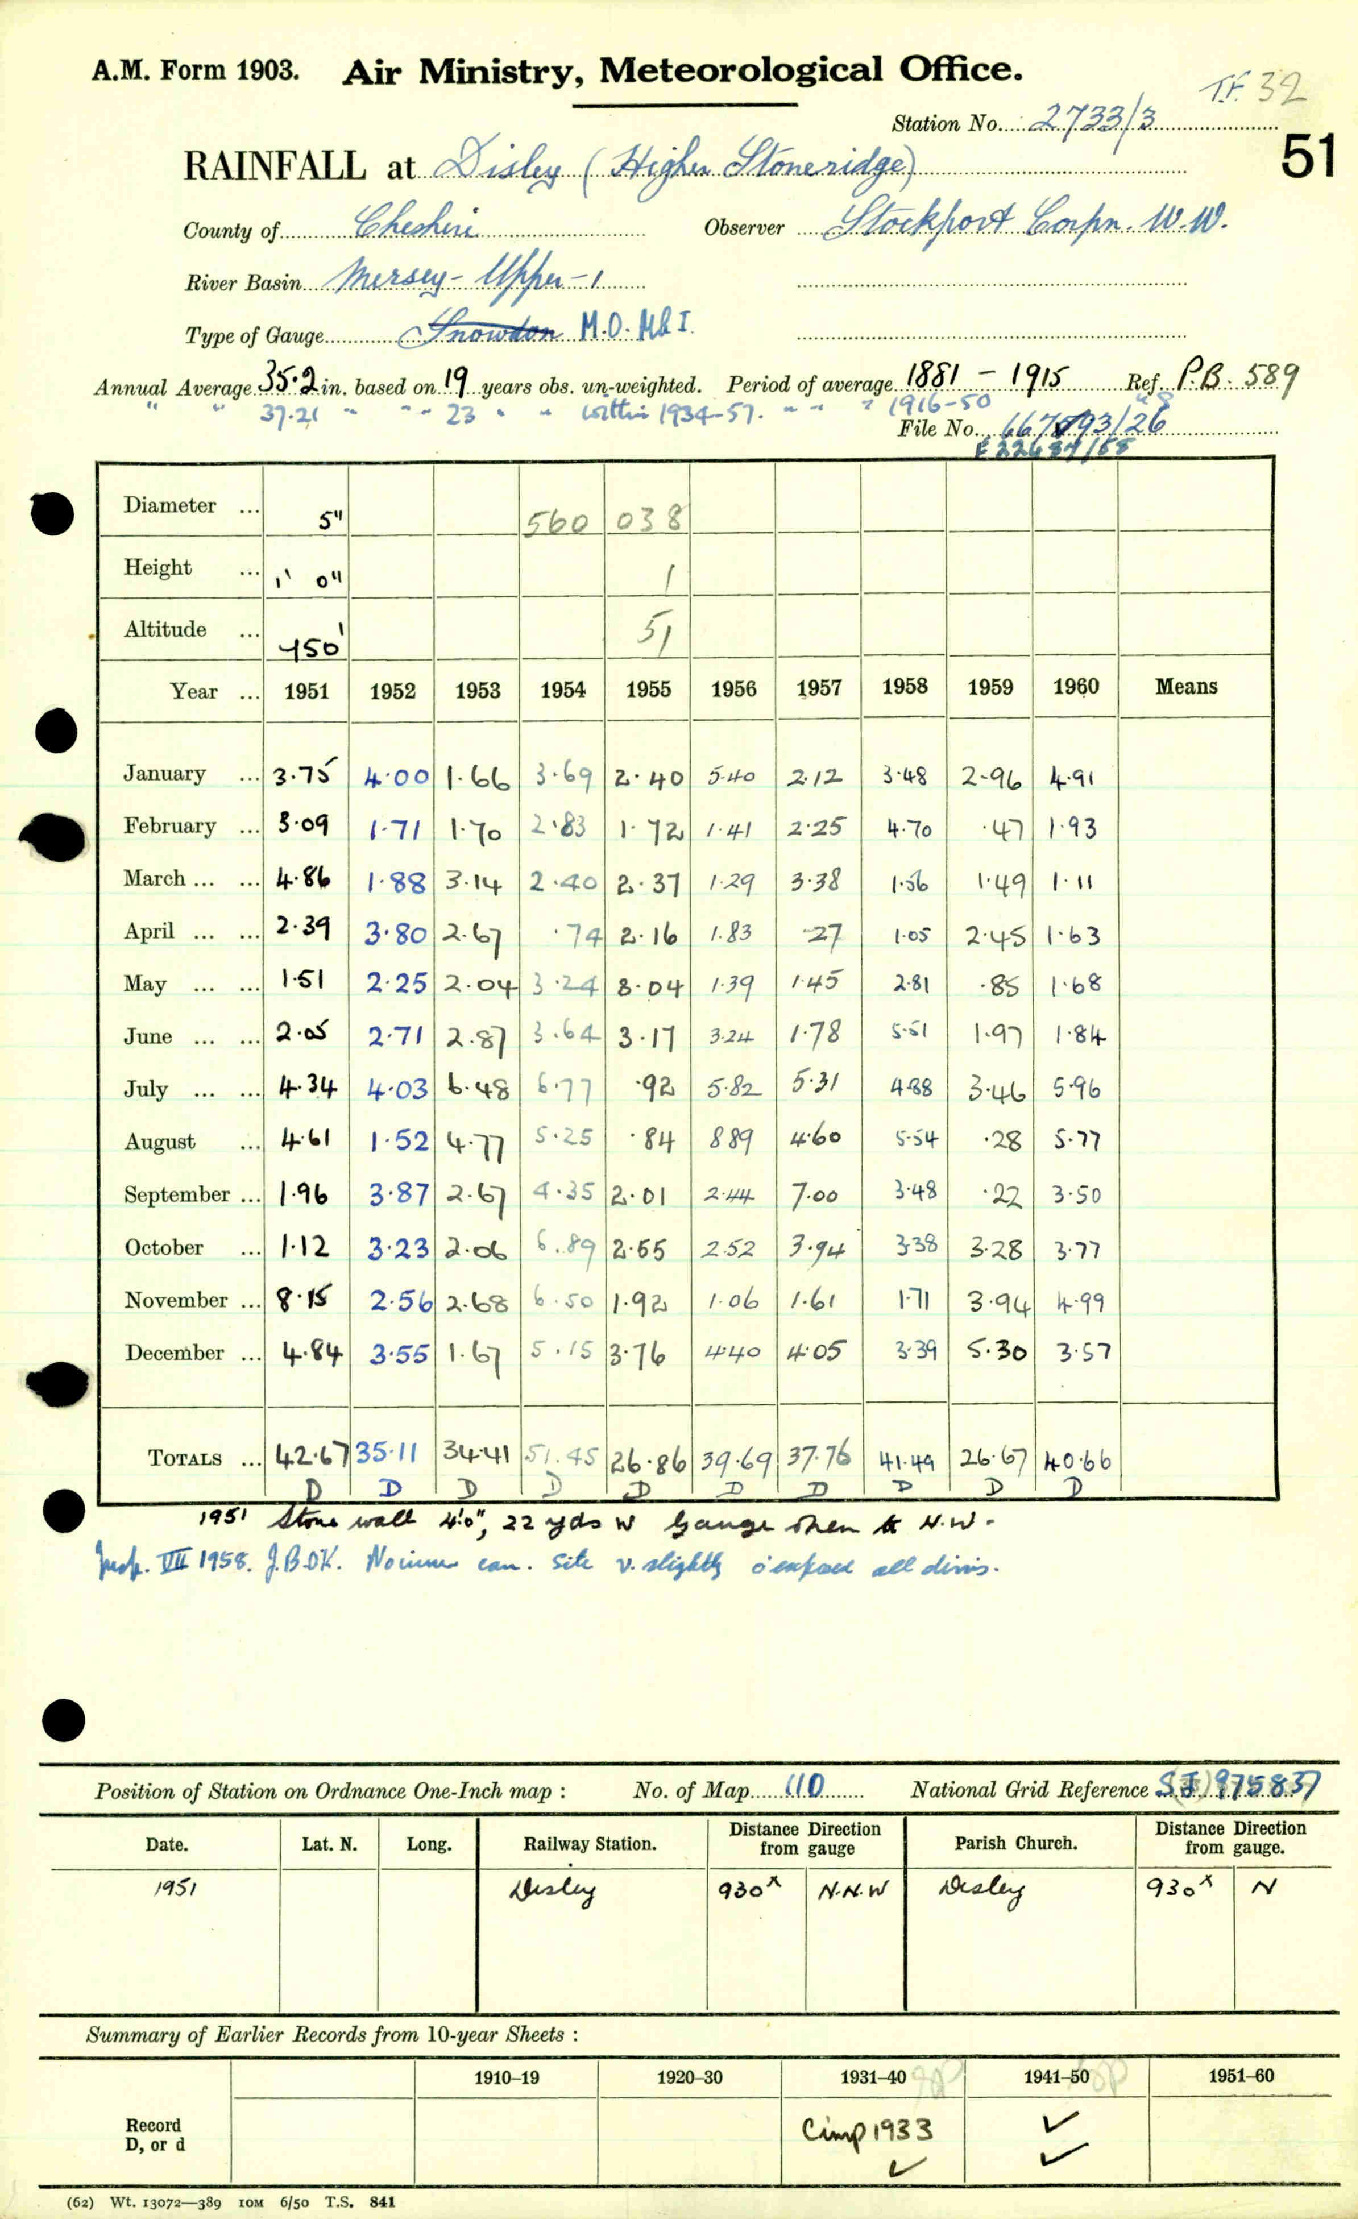 A.M. Form 1903. Air Ministry, Meteorological Office.
T.F. 32
Station No. 2733/3
51
RAINFALL at Disley (Higher Stoneridge)
County of Cheshire Observer Stockport Corpn. W.W.
River Basin Mersey - Upper - 1
Type of Gauge Snowdon M.O. Mk I.
Annual Average 35.2 in. based on 19 years obs. un-weighted. Period of average 1881 - 1915 Ref. P.B. 589
" " 37.21 " " " 23 " " within 1934-57. " " " 1916-50
File No. 93/26
Diameter ... 5" 560 038
Height ... 1' 0" 1
Altitude ... 450' 51
Year ... 1951 1952 1953 1954 1955 1956 1957 1958 1959 1960 Means
January ... 3.75 4.00 1.66 3.69 2.40 5.40 2.12 3.48 2.96 4.91
February ... 3.09 1.71 1.70 2.83 1.72 1.41 2.25 4.70 .47 1.93
March ... ... 4.86 1.88 3.14 2.40 2.37 1.29 3.38 1.56 1.49 1.11
April ... ... 2.39 3.80 2.67 .74 2.16 1.83 .27 1.05 2.45 1.63
May ... ... 1.51 2.25 2.04 3.24 3.04 1.39 1.45 2.81 .85 1.68
June ... ... 2.05 2.71 2.87 3.64 3.17 3.24 1.78 5.51 1.97 1.84
July ... ... 4.34 4.03 6.48 6.77 .92 5.82 5.31 4.88 3.46 5.96
August ... 4.61 1.52 4.77 5.25 .84 8.89 4.60 5.54 .28 5.77
September ... 1.96 3.87 2.67 4.35 2.01 2.44 7.00 3.48 .22 3.50
October ... 1.12 3.23 2.06 6.89 2.55 2.52 3.94 3.38 3.28 3.77
November ... 8.15 2.56 2.68 6.50 1.92 1.06 1.61 1.71 3.94 4.99
December ... 4.84 3.55 1.67 5.15 3.76 4.40 4.05 3.39 5.30 3.57
TOTALS ... 42.67 35.11 34.41 51.45 26.86 39.69 37.76 41.49 26.67 40.66
D D D D D D D D D D
1951 Stone wall 4'0", 22 yds W Gauge open to N.W.
Insp. VII 1958. J.B. OK. can. Site v. slightly all dirns.
Position of Station on Ordnance One-Inch map : No. of Map 110 National Grid Reference SJ 975837
Date. Lat. N. Long. Railway Station. Distance Direction from gauge Parish Church. Distance Direction from gauge.
1951 Disley 930x N.N.W Disley 930x N
Summary of Earlier Records from 10-year Sheets :
1910–19 1920–30 1931–40 1941–50 1951–60
Record D, or d 1933 ✓ ✓ ✓
(62) Wt. 13072—389 10M 6/50 T.S. 841